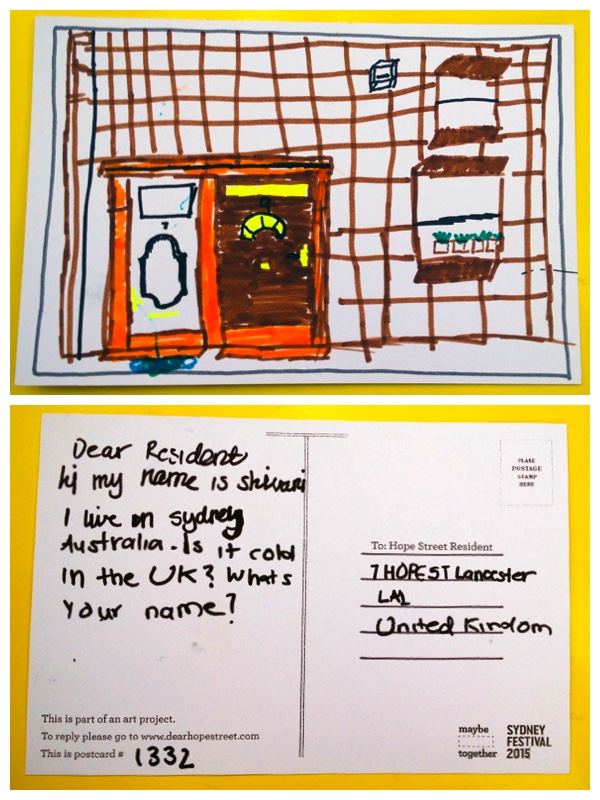 7
9
Dear Resident
hi my name is shivari
I live in sydney
Australia. Is it cold
in the UK? Whats
your name?
This is part of an art project.
To reply please go to www.dearhopestreet.com
This is postcard # 1332
PLACE
POSTAGE
STAMP
HERE
To: Hope Street Resident
7 HOPE ST Lancaster
LA1
United Kindom
maybe
together
SYDNEY
FESTIVAL
2015